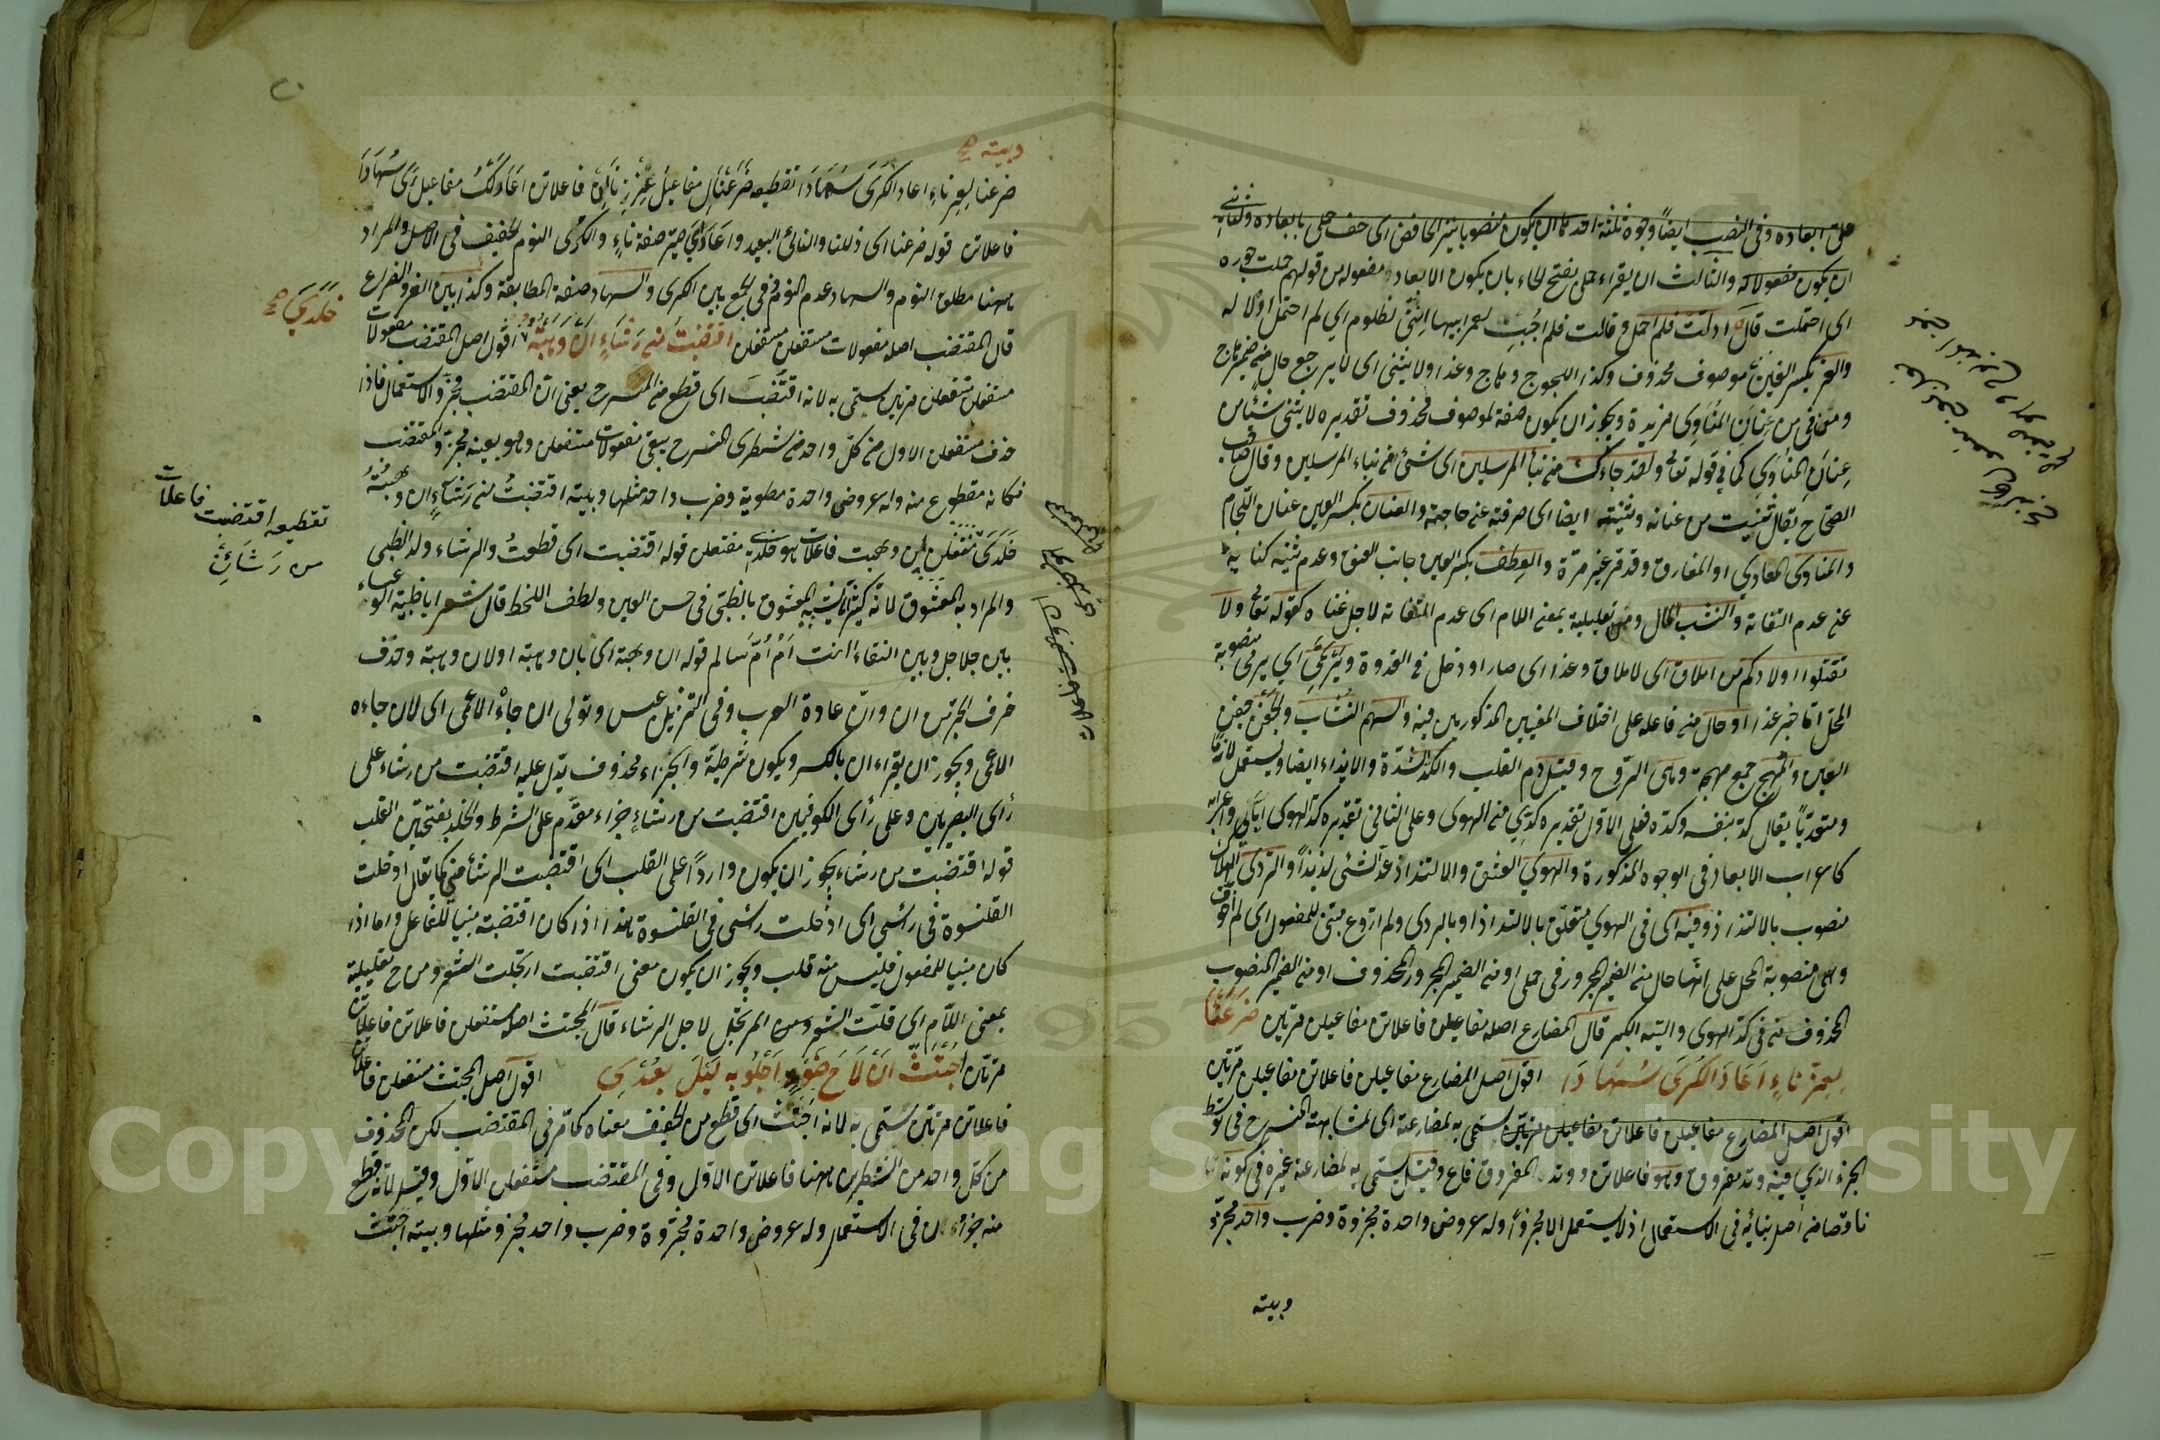 على ابعاده وفى النصب ايضاً وجوه ثلثة احدها ان يكون منصوبا بنزع الخافض اى خف حملى بابعاده وثانيها
ان يكون مفعولا له والثالث ان يقراء حملى بفتح الحاء بان يكون الابعاد مفعوله من قولهم حملت جوره
اى احتملت قال ادلّت فلم احمل وقالت فلم اجب لعمر ابيها اننى لظلوم اي لم احتمل اولا له
والغر بكسر الغين موصوف محذوف وكذا اللجوج وعذا ولا يثنى اى لا يرجع حال من ضمير
ومن فى من عنان المناوى مزيدة ويجوز ان يكون صفة لموصوف محذوف تقديره لا يثنى شئ من
عنان المناوى كما فى قوله تعالى ولقد جاءك من نبأ المرسلين اى شئ من نباء المرسلين وقال صاحب
الصحاح يقال ثنيت من عنانه وثنيته ايضا اى صرفته عن حاجته والعنان بكسر العين عنان اللجام
والمناوى المعادي او المفارق وقد مر غير مرّة والعطف بكسر العين جانب العنق وعدم ثنيه كناية
عن عدم التفاته والنشب المال ومن تعليلية بمعنى اللام اى عدم التفاته لاجل غناه كقوله تعالى ولا
تقتلوا اولادكم من املاق اى لاملاق وعذا اى صار او دخل فى الغدوة ويرمى اي يرمى منصوبة
المحل اما خبر عذا او حال من فاعله على اختلاف المعنيين المذكورين فيه والسهم النشاب والجفن جفن
العين والمهج جمع مهجة وهى الروح وقيل دم القلب والكد الشدة والايذاء ايضا ويستعمل لازما
ومتعديّاً يقال كدّ بنفسه وكدّه فعلى الاوّل تقديره كدّى من الهوى وعلى الثانى تقديره كدّ الهوى ايّاى واعرابه
كاعراب الابعاد فى الوجوه المذكورة والهوى العشق والالتذاذ عدّ الشئى لذيذاً والردى الهلاك
منصوب بالالتذاذ وفيه اى فى الهوي متعلق بالالتذاذ او بالردى ولم اروع مبنى للمفعول اى لم اخوّف
وهى منصوبة المحل على انها حال من الضمير المجرور فى حملى او من الضمير المجرور المحذوف او من الضمير المنصوب
المحذوف من فى كدّ الهوى والتيه الكبر قال المضارع اصله مفاعيلن فاعلاتن مفاعيلن مرتين ضرعنا
لعز ناءٍ اعاد الكرى سهادا اقول اصل المضارع مفاعيلن فاعلاتن مفاعيلن مرّتين
اقول اصل المضارع مفاعيلن فاعلاتن مفاعيلن مرّتين سمّى به لمضارعته اى لمشابهته المنسرح فى توسّط
الجزء الذي فيه وتد مفروق وهو فاعلاتن ووتده المفروق فاع وقيل سمّى به لمضارعة غيره فى كونه
ناقصا من اصل بنائه فى الاستعمال اذ لا يستعمل الا مجزوأ وله عروض واحدة مجزوة وضرب واحد مجزوّ
وبيته
وبيته
ضرعنا لعز ناءٍ اعاد الكرى سهادا تقطيعه ضرعنال مفاعيل عزز نائن فاعلاتن اعادلك مفاعيل رى سهادا
فاعلاتن قوله ضرعنا اى ذللنا والنائى البعيد واعاد صيّر صفة ناءٍ والكرى النوم الخفيف فى الاصل والمراد
ههنا مطلق النوم والسهاد عدم النوم ففى الجمع بين الكرى والسهاد صنعة المطابقة وكذا بين العز والضراع
قال المقتضب اصله مفعولات مستفعلن مستفعلن اقتضبتُ من رشاءٍ ان وهبته اقول اصل المقتضب مفعولات
مستفعلن مستفعلن مرتين سمّى به لانه اقتضب اى قطع من المنسرح يعنى ان المقتضب مجزوّ الاستعمال فاذا
حذف مستفعلن الاول من كلّ واحد من شطرى المنسرح يبقى مفعولات مستفعلن وهو بعينه مجزوّ المقتضب
فكانه مقطوع منه وله عروض واحدة مطوية وضرب واحد مثلها وبيته اقتضبتُ من رشاءٍ ان وهبته
خلدى مفتعلن ان وهبت فاعلات هو خلدى مفتعلن قوله اقتضبت اى قطعتُ والرشاء ولد الظبى
والمراد به المعشوق لانه كثيراً ما يشبه المعشوق بالظبى فى حسن العين ولطف اللحظ قال شعر ايا ظبية الوعساء
بين جلاجل وبين النقاء اانت ام امّ سالم قوله ان وهبته اى بان وهبته اولان وهبته وحذف
حرف الجر من ان وانّ عادة العرب وفى التنزيل عبس وتولى ان جاءه الاعمى اى لان جاءه
الاعمى ويجوز ان يقراء ان بالكسر ويكون شرطية والجزاء محذوف يدّل عليه اقتضبت من رشاء على
رأى البصريين وعلى رأى الكوفيين اقتضبت من رشاءٍ جزاء مقدّم على الشرط والخلد بفتحتين القلب
قوله اقتضبت من رشاء يجوز ان يكون وارداً على القلب اى اقتضبت الرشأ منى كما يقال ادخلت
القلنسوة فى رائسى اى ادخلت رائسى فى القلنسوة هذا اذا كان اقتضبته مبنيا للفاعل واما اذا
كان مبنيا للمفعول فليس منه قلب ويجوز ان يكون معنى اقتضبت ارتجلت الشعر ومن ح تعليلية
بمعنى اللّام اى قلت الشعر المرتجل لاجل الرشاء قال المجتث اصله مستفعلن فاعلاتن فاعلاتن
مرتين اجتثّت ان لاح ضوء اجلو به ليل بعدي اقول اصل المجتث مستفعلن فاعلاتن
فاعلاتن مرتين سمّى به لانه اجتثّ اى قطع من الخفيف معناه كما مرّ فى المقتضب لكن المحذوف
من كلّ واحد من الشطرين ههنا فاعلاتن الاوّل وفى المقتضب مستفعلن الاوّل وقيل لانه قطع
منه جزءان فى الاستعمال وله عروض واحدة مجزوة وضرب واحد مجزو مثلها وبيته اجتثت
خلدي صح
تقطيعه اقتضبت فاعلات
من رشائن